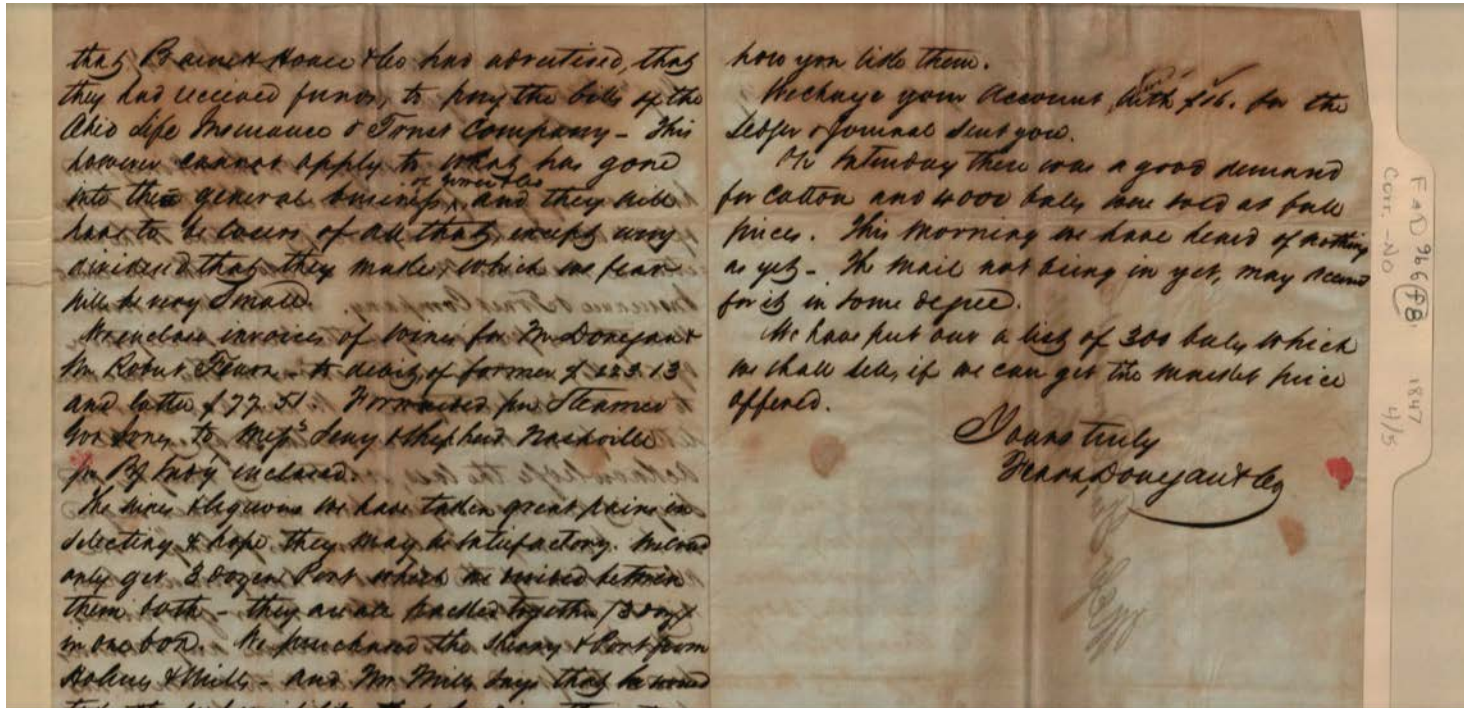 that Barnet Hoare & Co had advertised, that
they had received funds, to pay the bills of the
Ohio Life Insurance & Trust Company - This
however cannot apply to what has gone
into the general business, and they will
of Jones & Co
have to be losers of all that, except any
dividend that they make, which we fear
will be very small.
We enclose invoices of wines for Mr Donegan &
Mr Robert Fearn - to debit, of former $ 123.13
and latter $ 77.51. Forwarded per Steamer
Gov Jones to Messs & Shepherd Nashville
pr B/ Lady inclosed.
The wines & liquors we have taken great pains in
selecting & hope, they may be satisfactory. We could
only get 3 dozen Port which we divided between
them both - they are all packed together (3 doz)
in one box. We purchased the Sherry & Port from
Holmes & Mills - and Mr Mills says that he would
how you like them.
We charge your account with $16. for the
Ledger & Journal sent you.
On Saturday there was a good demand
for Cotton and 4000 bales were sold at full
prices. This morning we have heard of nothing
as yet - The mail not being in yet, may account
for it in some degree.
We have put out a list of 300 bales which
we shall sell, if we can get the market price
offered.
Yours truly
Fearn, Donegan & Co
F&D
966
(f8)
1847
Corr. - NO
4/5